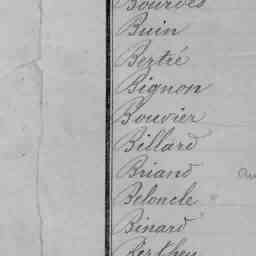 Bourdes
Buin
Bertré
Bignon
Bouvier
Billard
Briand
Beloncle "
Binard "
Berthey